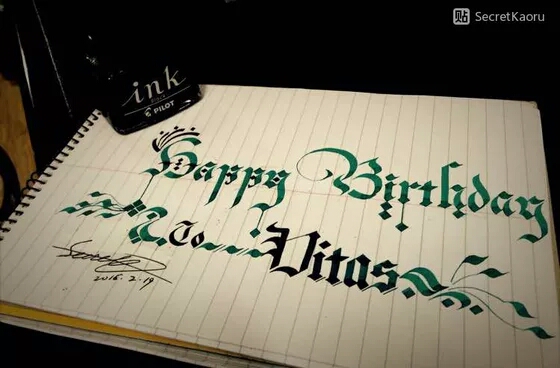 贴 SecretKaoru
ink
PILOT
Happy Birthday
To Vitas
2016.2.19